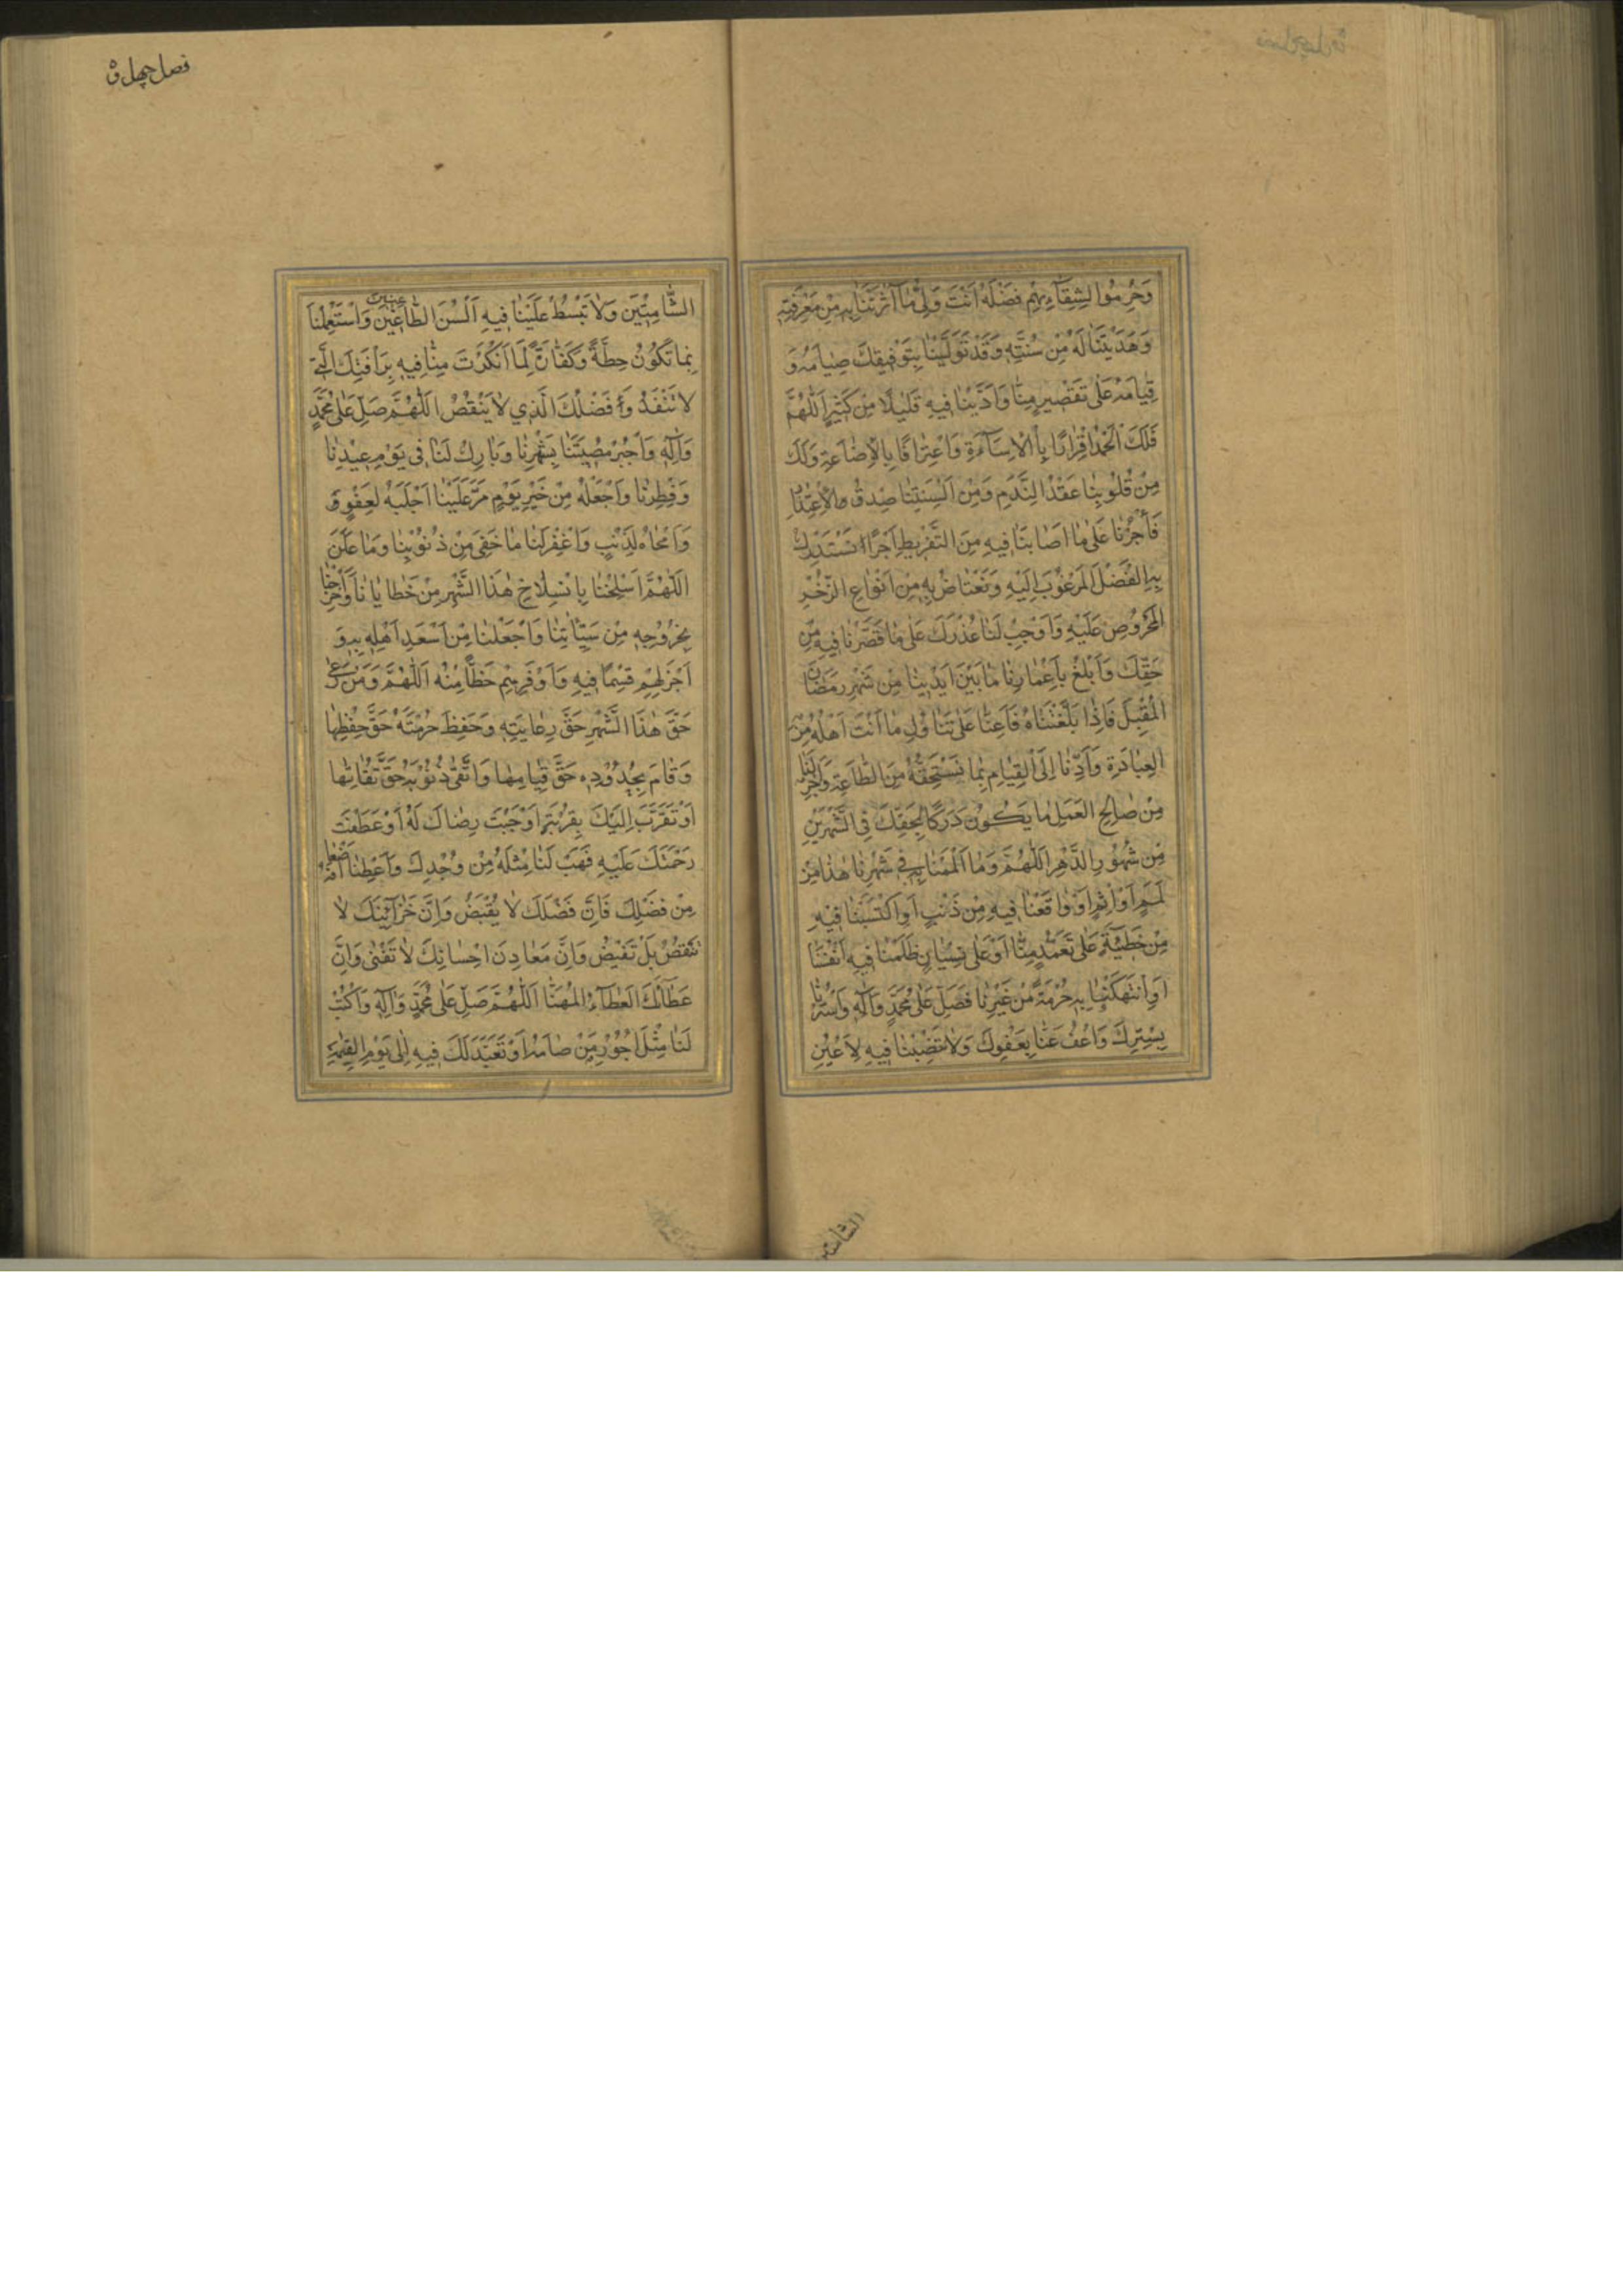 وَحُرِمُوا لِشِقَآءِهِمْ فَضْلَهُ اَنْتَ وَلِىُّ مَا آثَرْتَنَا بِهِ مِنْ مَعْرِفَتِهِ
وَهَدَيْتَنَا لَهُ مِنْ سُنَّتِهِ وَقَدْ تَوَلَّيْنَا بِتَوْفِيقِكَ صِيَامَهُ وَ
قِيَامَهُ عَلَى تَقْصِيرٍ مِنَّا وَاَدَّيْنَا فِيهِ قَلِيلًا مِنْ كَثِيرٍ اَللّٰهُمَّ
فَلَكَ الْحَمْدُ اِقْرَارًا بِالْاِسَآءَةِ وَاعْتِرَافًا بِالْاِضَاعَةِ وَلَكَ
مِنْ قُلُوبِنَا عَقْدُ النَّدَمِ وَمِنْ اَلْسِنَتِنَا صِدْقُ الْاِعْتِذَارِ
فَأْجُرْنَا عَلَى مَا اَصَابَنَا فِيهِ مِنَ التَّفْرِيطِ اَجْرًا نَسْتَدْرِكُ
بِهِ الْفَضْلَ الْمَرْغُوبَ اِلَيْهِ وَنَعْتَاضُ بِهِ مِنْ اَنْوَاعِ الذُّخْرِ
الْمَحْرُوصِ عَلَيْهِ وَاَوْجِبْ لَنَا عُذْرَكَ عَلَى مَا قَصَّرْنَا فِيهِ مِنْ
حَقِّكَ وَاَبْلِغْ بِاَعْمَارِنَا مَا بَيْنَ اَيْدِينَا مِنْ شَهْرِ رَمَضَانَ
الْمُقْبِلَ فَاِذَا بَلَّغْتَنَاهُ فَاَعِنَّا عَلَى تَنَاوُلِ مَا اَنْتَ اَهْلُهُ مِنَ
الْعِبَادَةِ وَاَدِّنَا اِلَى الْقِيَامِ بِمَا نَسْتَحِقُّهُ مِنَ الطَّاعَةِ وَاَجْرِ لَنَا
مِنْ صَالِحِ الْعَمَلِ مَا يَكُونُ دَرَكًا لِحَقِّكَ فِى الشَّهْرَيْنِ
مِنْ شُهُورِ الدَّهْرِ اَللّٰهُمَّ وَمَا اَلْمَمْنَا بِهِ فِى شَهْرِنَا هٰذَا مِنْ
لَمَمٍ اَوْ اِثْمٍ اَوْ وَاقَعْنَا فِيهِ مِنْ ذَنْبٍ اَوِ اكْتَسَبْنَا فِيْهِ
مِنْ خَطِيْئَةٍ عَلَى تَعَمُّدٍ مِنَّا اَوْ عَلَى نِسْيَانٍ ظَلَمْنَا فِيهِ اَنْفُسَنَا
اَوِ انْتَهَكْنَا بِهِ حُرْمَةً مِنْ غَيْرِنَا فَصَلِّ عَلَى مُحَمَّدٍ وَآلِهِ وَاسْتُرْنَا
بِسِتْرِكَ وَاعْفُ عَنَّا بِعَفْوِكَ وَلَا تَنْصِبْنَا فِيهِ لِاَعْيُنِ
فصل چهل و
الشَّامِتِيْنَ وَلَا تَبْسُطْ عَلَيْنَا فِيهِ اَلْسُنَ الطَّاغِيْنَ وَاسْتَعْمِلْنَا
بِمَا تَكُوْنُ حِطَّةً وَكَفَّارَةً لِمَا اَنْكَرْتَ مِنَّا فِيهِ بِرَأْفَتِكَ الَّتِى
لَا تَنْفَدُ وَفَضْلِكَ الَّذِي لَا يَنْقُصُ اَللّٰهُمَّ صَلِّ عَلَى مُحَمَّدٍ
وَآلِهِ وَاجْبُرْ مُصِيبَتَنَا بِشَهْرِنَا وَبَارِكْ لَنَا فِى يَوْمِ عِيْدِنَا
وَفِطْرِنَا وَاجْعَلْهُ مِنْ خَيْرِ يَوْمٍ مَرَّ عَلَيْنَا اَجْلَبَهُ لِعَفْوٍ
وَاَمْحَاهُ لِذَنْبٍ وَاغْفِرْ لَنَا مَا خَفِىَ مِنْ ذُنُوْبِنَا وَمَا عَلَنَ
اَللّٰهُمَّ اسْلَخْنَا بِانْسِلَاخِ هٰذَا الشَّهْرِ مِنْ خَطَايَانَا وَاَخْرِجْنَا
بِخُرُوْجِهِ مِنْ سَيِّاٰتِنَا وَاجْعَلْنَا مِنْ اَسْعَدِ اَهْلِهِ بِهِ وَ
اَجْزَلِهِمْ قِسْمًا فِيهِ وَاَوْفَرِهِمْ حَظًّا مِنْهُ اَللّٰهُمَّ وَمَنْ رَعٰى
حَقَّ هٰذَا الشَّهْرِ حَقَّ رِعَايَتِهِ وَحَفِظَ حُرْمَتَهُ حَقَّ حِفْظِهَا
وَقَامَ بِحُدُوْدِهِ حَقَّ قِيَامِهَا وَاتَّقٰى ذُنُوْبَهُ حَقَّ تُقَاتِهَا
اَوْ تَقَرَّبَ اِلَيْكَ بِقُرْبَةٍ اَوْجَبَتْ رِضَاكَ لَهُ اَوْ عَطَفَتْ
رَحْمَتَكَ عَلَيْهِ فَهَبْ لَنَا مِثْلَهُ مِنْ وُجْدِكَ وَاَعْطِنَا اَضْعَافَهُ
مِنْ فَضْلِكَ فَاِنَّ فَضْلَكَ لَا يُقْبَضُ وَاِنَّ خَزَآئِنَكَ لَا
تَنْقُصُ بَلْ تَفِيْضُ وَاِنَّ مَعَادِنَ اِحْسَانِكَ لَا تَفْنٰى وَاِنَّ
عَطَآءَكَ الْعَطَآءُ الْمُهَنَّا اَللّٰهُمَّ صَلِّ عَلَى مُحَمَّدٍ وَآلِهِ وَاكْتُبْ
لَنَا مِثْلَ اُجُوْرِ مَنْ صَامَهُ اَوْ تَعَبَّدَ لَكَ فِيهِ اِلٰى يَوْمِ الْقِيٰمَةِ